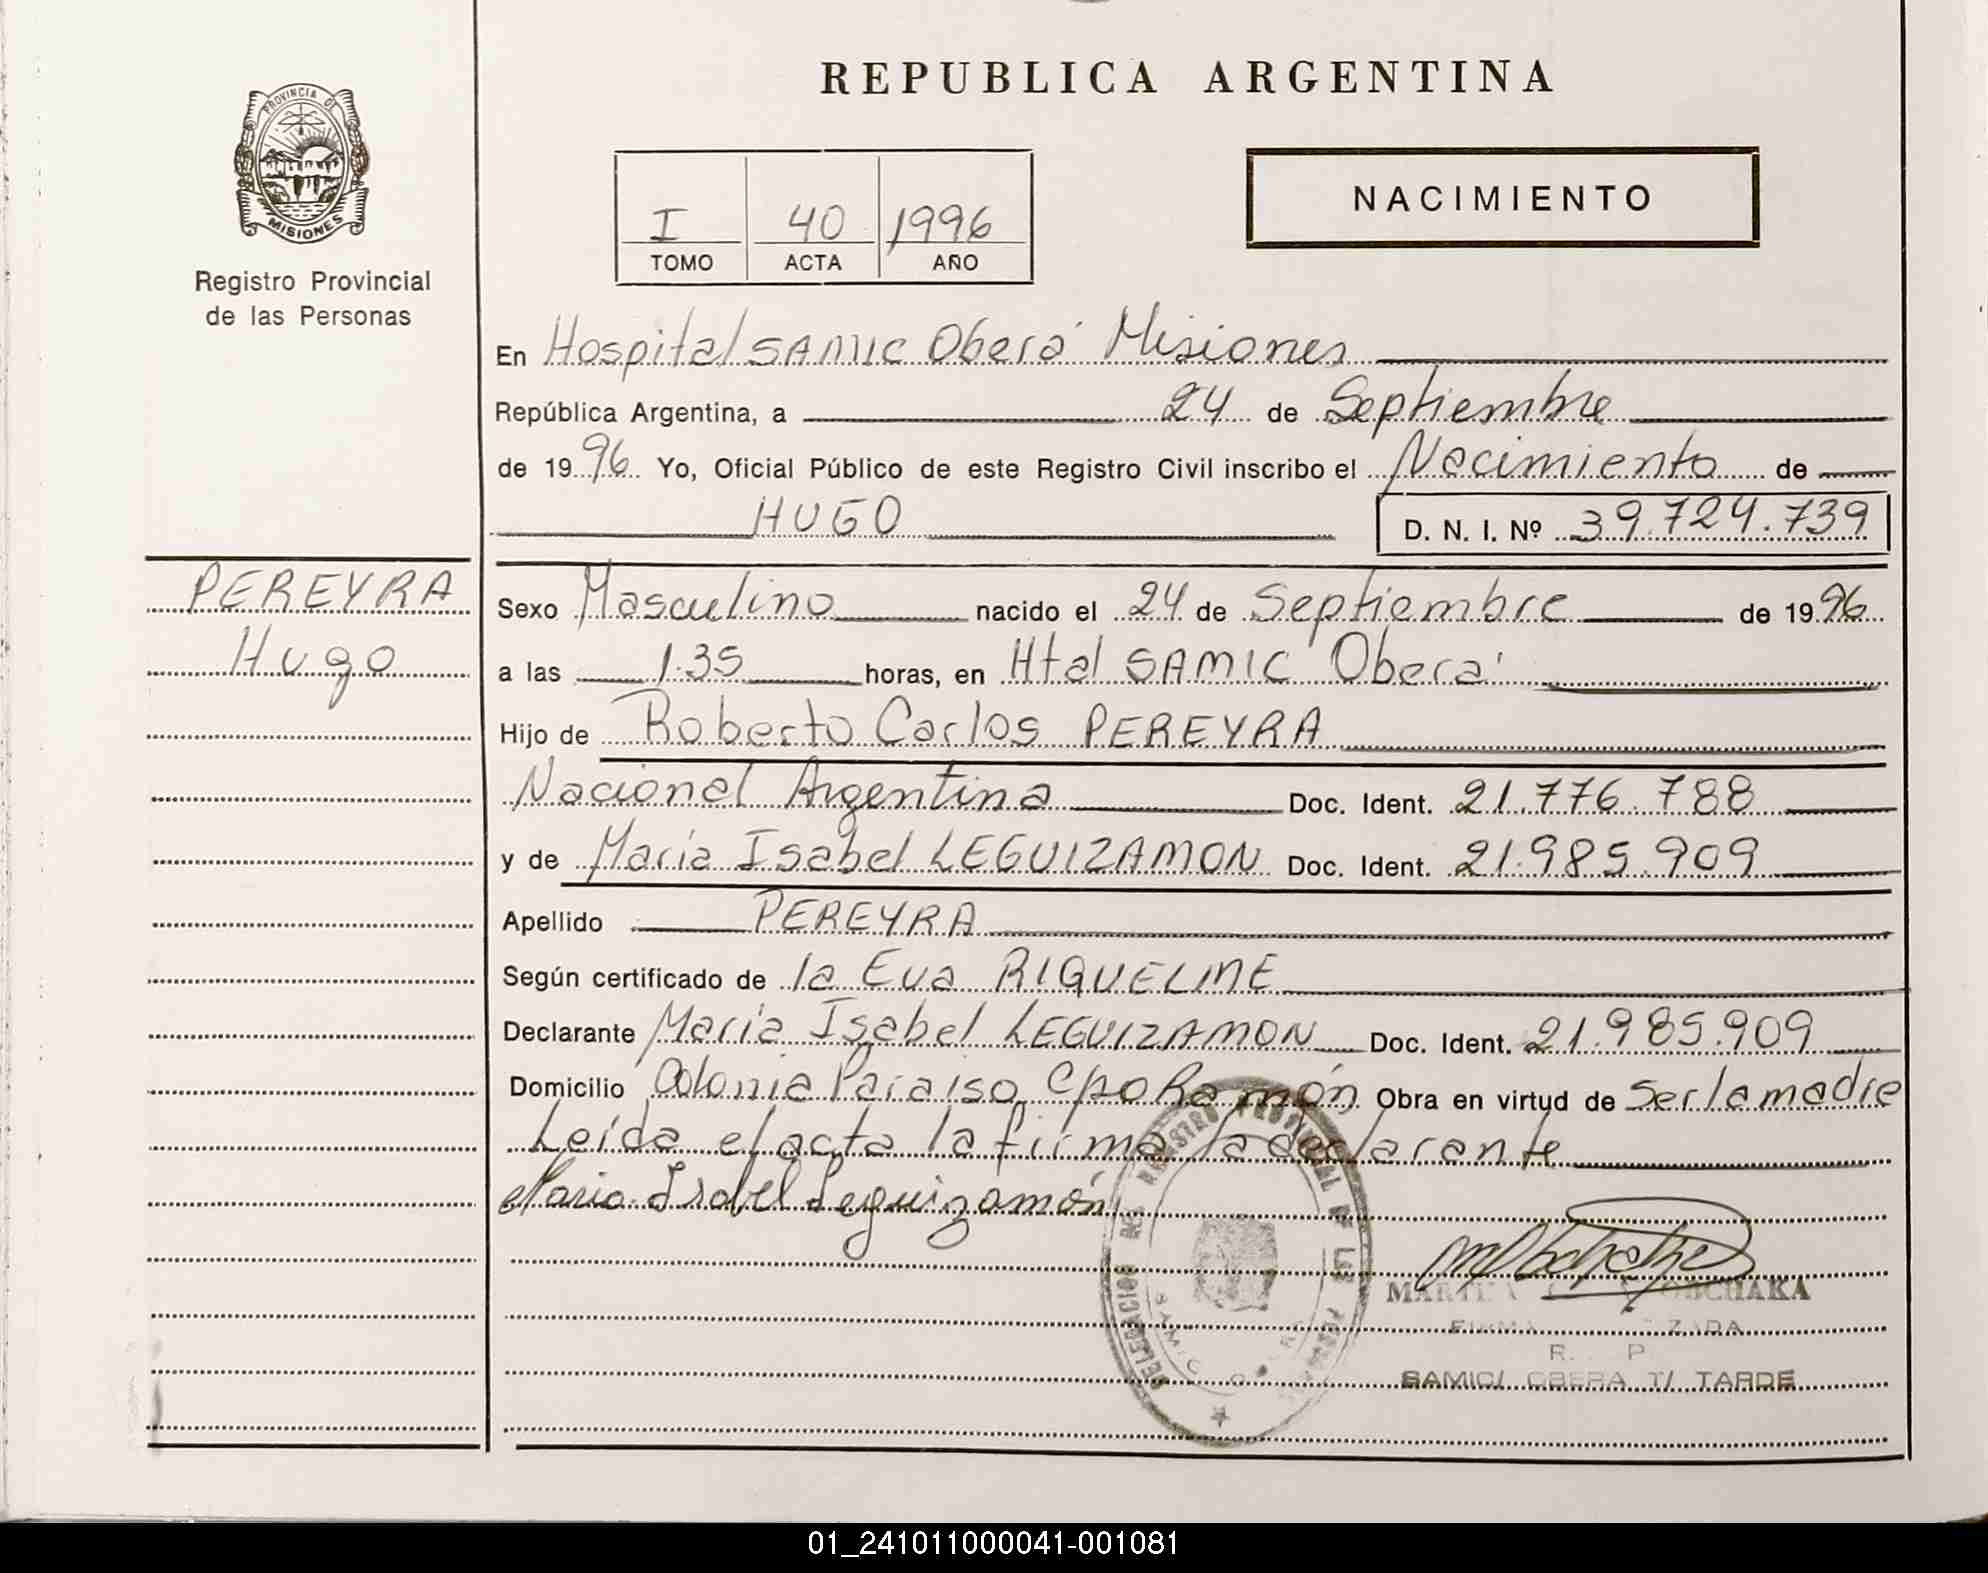 REPUBLICA ARGENTINA
PROVINCIA DE
MISIONES
Registro Provincial
de las Personas
NACIMIENTO
I 40 1996
TOMO ACTA AÑO
En Hospital SAMIC Oberá Misiones
República Argentina, a 24 de Septiembre
de 1996 Yo, Oficial Público de este Registro Civil inscribo el Nacimiento de
HUGO D. N. I. Nº 39.724.739
PEREYRA
Hugo
Sexo Masculino nacido el 24 de Septiembre de 1996
a las 1.35 horas, en Htal SAMIC Oberá
Hijo de Roberto Carlos PEREYRA
Nacional Argentina Doc. Ident. 21.776.788
y de María Isabel LEGUIZAMON Doc. Ident. 21.985.909
Apellido PEREYRA
Según certificado de la Eva RIQUELME
Declarante María Isabel LEGUIZAMON Doc. Ident. 21.985.909
Domicilio Colonia Paraiso Cpo Ramón Obra en virtud de Ser la madre
Leída el acta la firma la declarante
Maria Isabel Leguizamón
SAMIC/ OBERA T/ TARDE
01_241011000041-001081